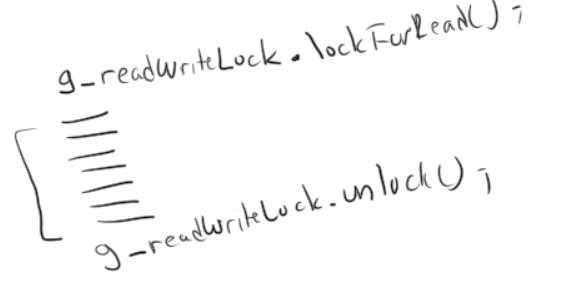 g_readWriteLock.lockForRead();
g_readWriteLock.unlock();